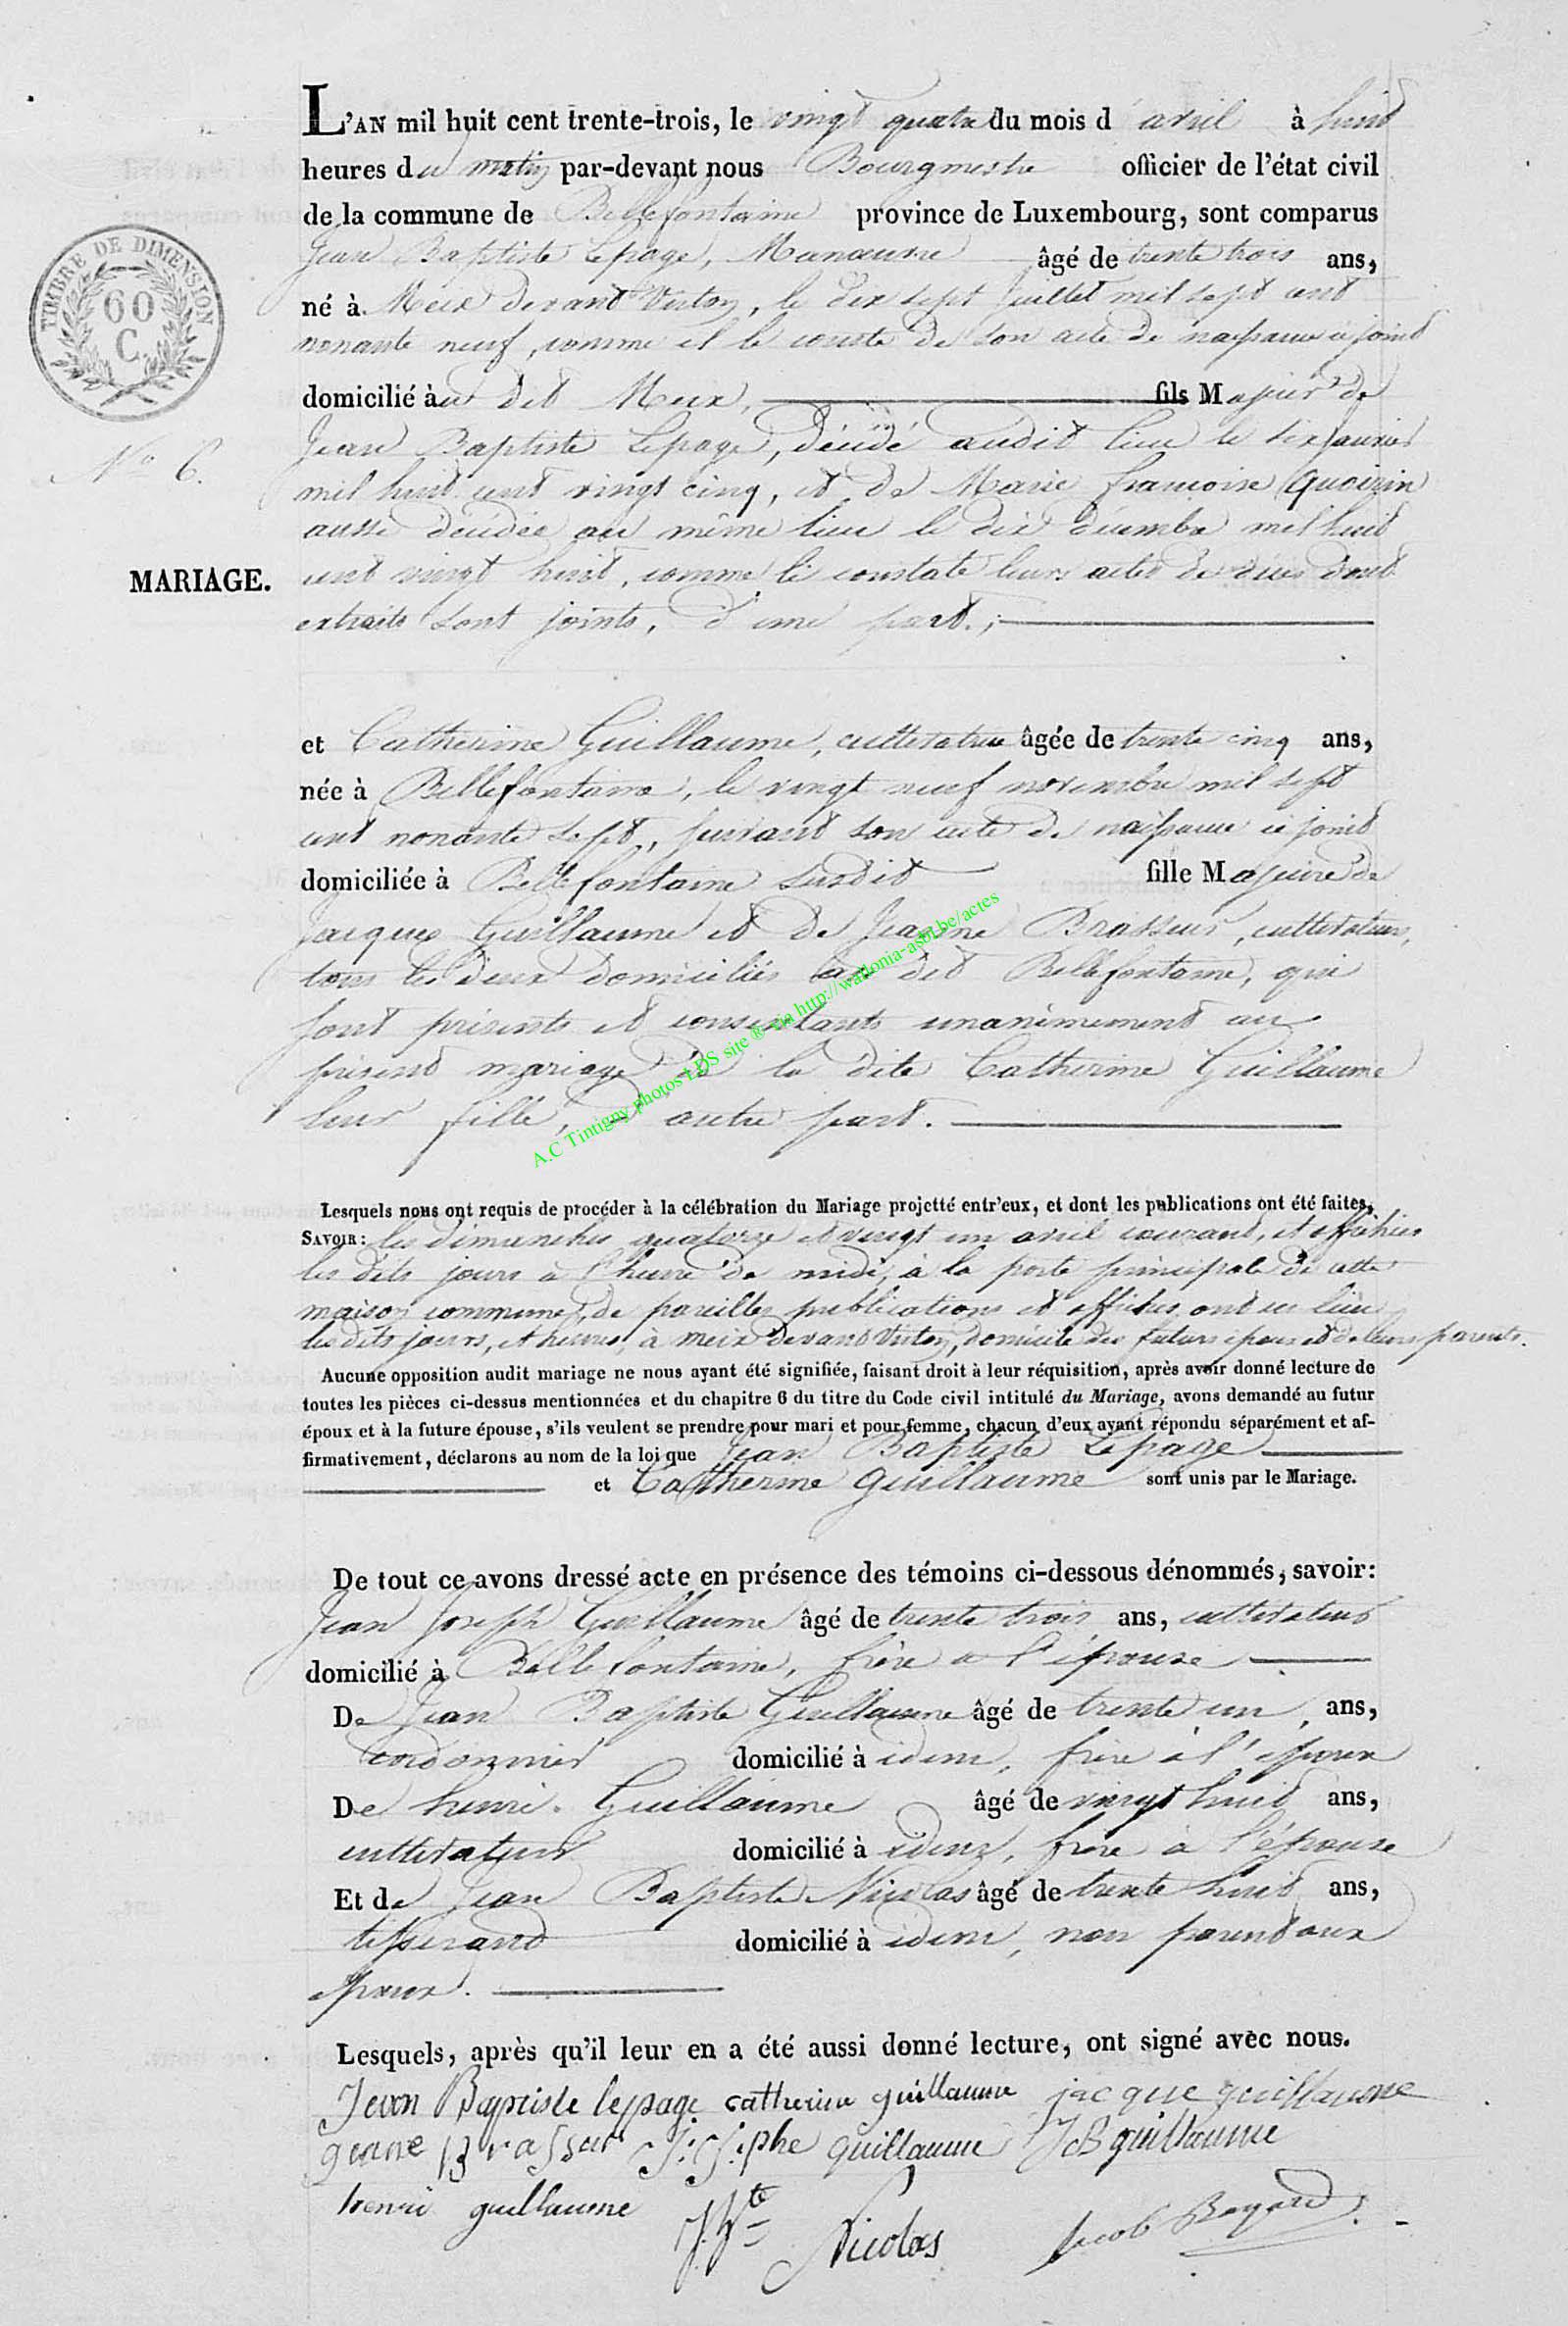 L'AN mil huit cent trente-trois, le vingt quatre du mois d avril à huit
heures du matin par-devant nous Bourgmestre officier de l'état civil
de la commune de Bellefontaine province de Luxembourg, sont comparus
Jean Baptiste Lepage, Manœuvre âgé de trente trois ans,
né à Meix devant Virton, le dix sept Juillet mil sept cent
nonante neuf, comme il le conste de son acte de naissance ci joint
TIMBRE DE DIMENSION
60
C.
domicilié au dit Meix, fils Majeur de
Jean Baptiste Lepage, décédé audit lieu le six janvier
No 6.
mil huit cent vingt cinq, et de Marie francoise Quoirin
aussi décédée au même lieu le dix décembre mil huit
MARIAGE.
cent vingt huit, comme le constate leurs actes de décès dont
extraits sont joints, d'une part.;
et Catherine Guillaume, cultivatrice âgée de trente cinq ans,
née à Bellefontaine, le vingt neuf novembre mil sept
cent nonante sept, suivant son acte de naissance ci joint
domiciliée à Bellefontaine susdit fille Majeure de
Jacques Guillaume et de Jeanne Brasseur, cultivateurs,
tous les deux domiciliés au dit Bellefontaine, qui
sont présents et consentants unanimement au
présent mariage de la dite Catherine Guillaume
leur fille, d'autre part.
A.C Tintigny photos LDS site ® via http://wallonia-asbl.be/actes
Lesquels nous ont requis de procéder à la célébration du Mariage projetté entr'eux, et dont les publications ont été faites,
SAVOIR: les dimanches quatorze et vingt un avril courant, et affichées
les dits jours à l'heure de midi, à la porte principale de cette
maison commune, de pareilles publications et affiches ont eu lieu
les dits jours, et heures, à meix devant Virton, domicile des futurs époux et de leurs parents.
Aucune opposition audit mariage ne nous ayant été signifiée, faisant droit à leur réquisition, après avoir donné lecture de
toutes les pièces ci-dessus mentionnées et du chapitre 6 du titre du Code civil intitulé du Mariage, avons demandé au futur
époux et à la future épouse, s'ils veulent se prendre pour mari et pour femme, chacun d'eux ayant répondu séparément et af-
firmativement, déclarons au nom de la loi que Jean Baptiste Lepage
et Catherine Guillaume sont unis par le Mariage.
De tout ce avons dressé acte en présence des témoins ci-dessous dénommés, savoir:
Jean Joseph Guillaume âgé de trente trois ans, cultivateur
domicilié à Bellefontaine, frère à l'épouse
De Jean Baptiste Guillaume âgé de trente un, ans,
cordonnier domicilié à idem, frère à l'épouse
De henri Guillaume âgé de vingt huit ans,
cultivateur domicilié à idem, frère à l'épouse
Et de Jean Baptiste Nicolas âgé de trente huit ans,
tisserand domicilié à idem, non parent aux
époux.
Lesquels, après qu'il leur en a été aussi donné lecture, ont signé avec nous.
Jean Baptiste lepage catherine guillaume jacque guillaume
genne brassur J: J:phe guillaume JB guillaume
henri guillaume J.Bte Nicolas Jacob